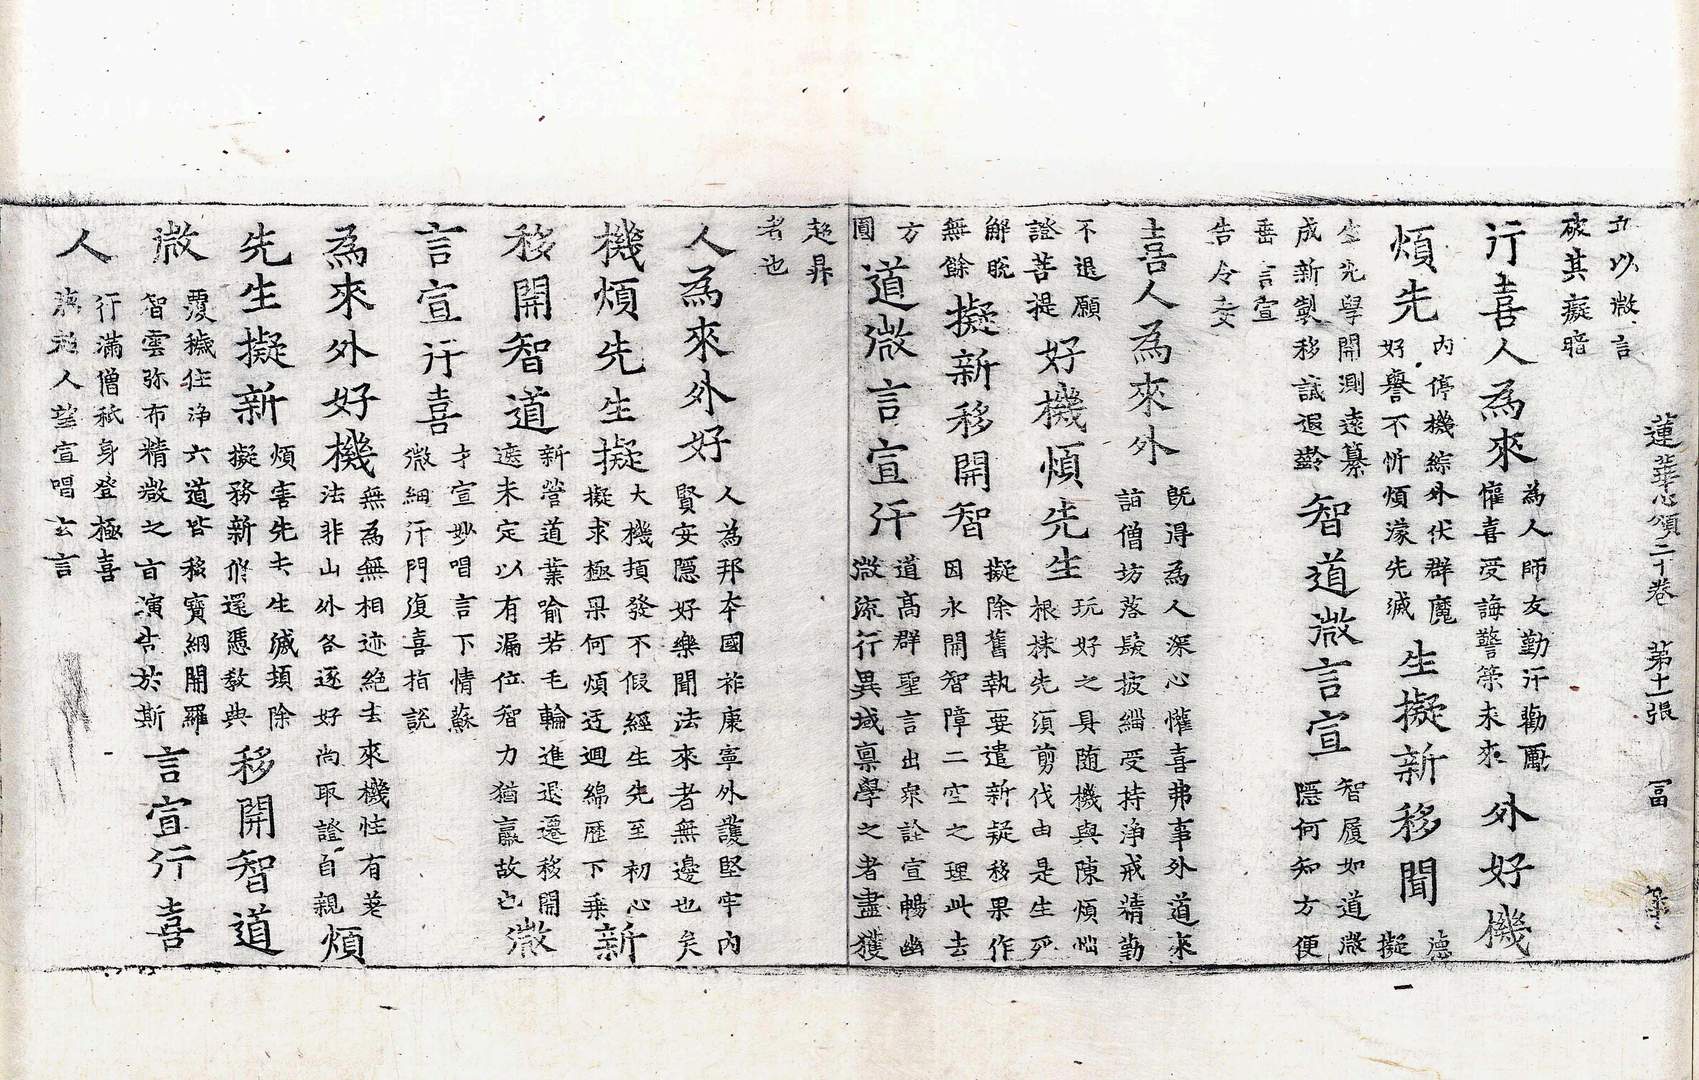 蓮華心頌二十卷 第十一張 冨
立以微言
破其癡暗
行喜人為來
為人師友勤行勸勵
懽喜受誨警策未來
外好機
煩先
內停機綜外伏群魔
好譽不忻煩濛先滅
生擬新移開
德
擬
生先學開測遠纂
成新製移誡退齡
智道微言宣
智履如道微
隱何知方便
垂言宣
告令交
喜人為來外
既得為人深心懽喜弗事外道來
詣僧坊落髮披緇受持浄戒精勤
不退願
證菩提
好機煩先生
玩好之具随機與陳煩惱
根株先須剪伐由是生死
解脫
無餘
擬新移開智
擬除舊執要遣新疑移果作
因永開智障二空之理此去
方
圓
道微言宣行
道高群聖言出衆詮宣暢幽
微流行異域禀學之者盡獲
超昇
者也
人為來外好
人為邦本國祚康寧外護堅牢內
賢安隱好樂聞法來者無邊也矣
機煩先生擬
大機頓發不假經生先至初心
擬求極果何煩迂迴綿歷下乗
新
移開智道
新營道業喻若毛輪進退遷移開
遮未定以有漏位智力猶羸故也
微
言宣行喜
才宣妙唱言下情蘇
微細行門復喜指說
為來外好機
無為無相迹絶去來機性有
法非山外各逐好尚取證自親
煩
先生擬新
煩害先去生滅頓除
擬務新修還憑教典
移開智道
微
覆穢住浄六道皆移寶網開羅
智雲弥布精微之旨演告於斯
言宣行喜
人
行滿僧祇身登極喜
起人望宣唱玄言